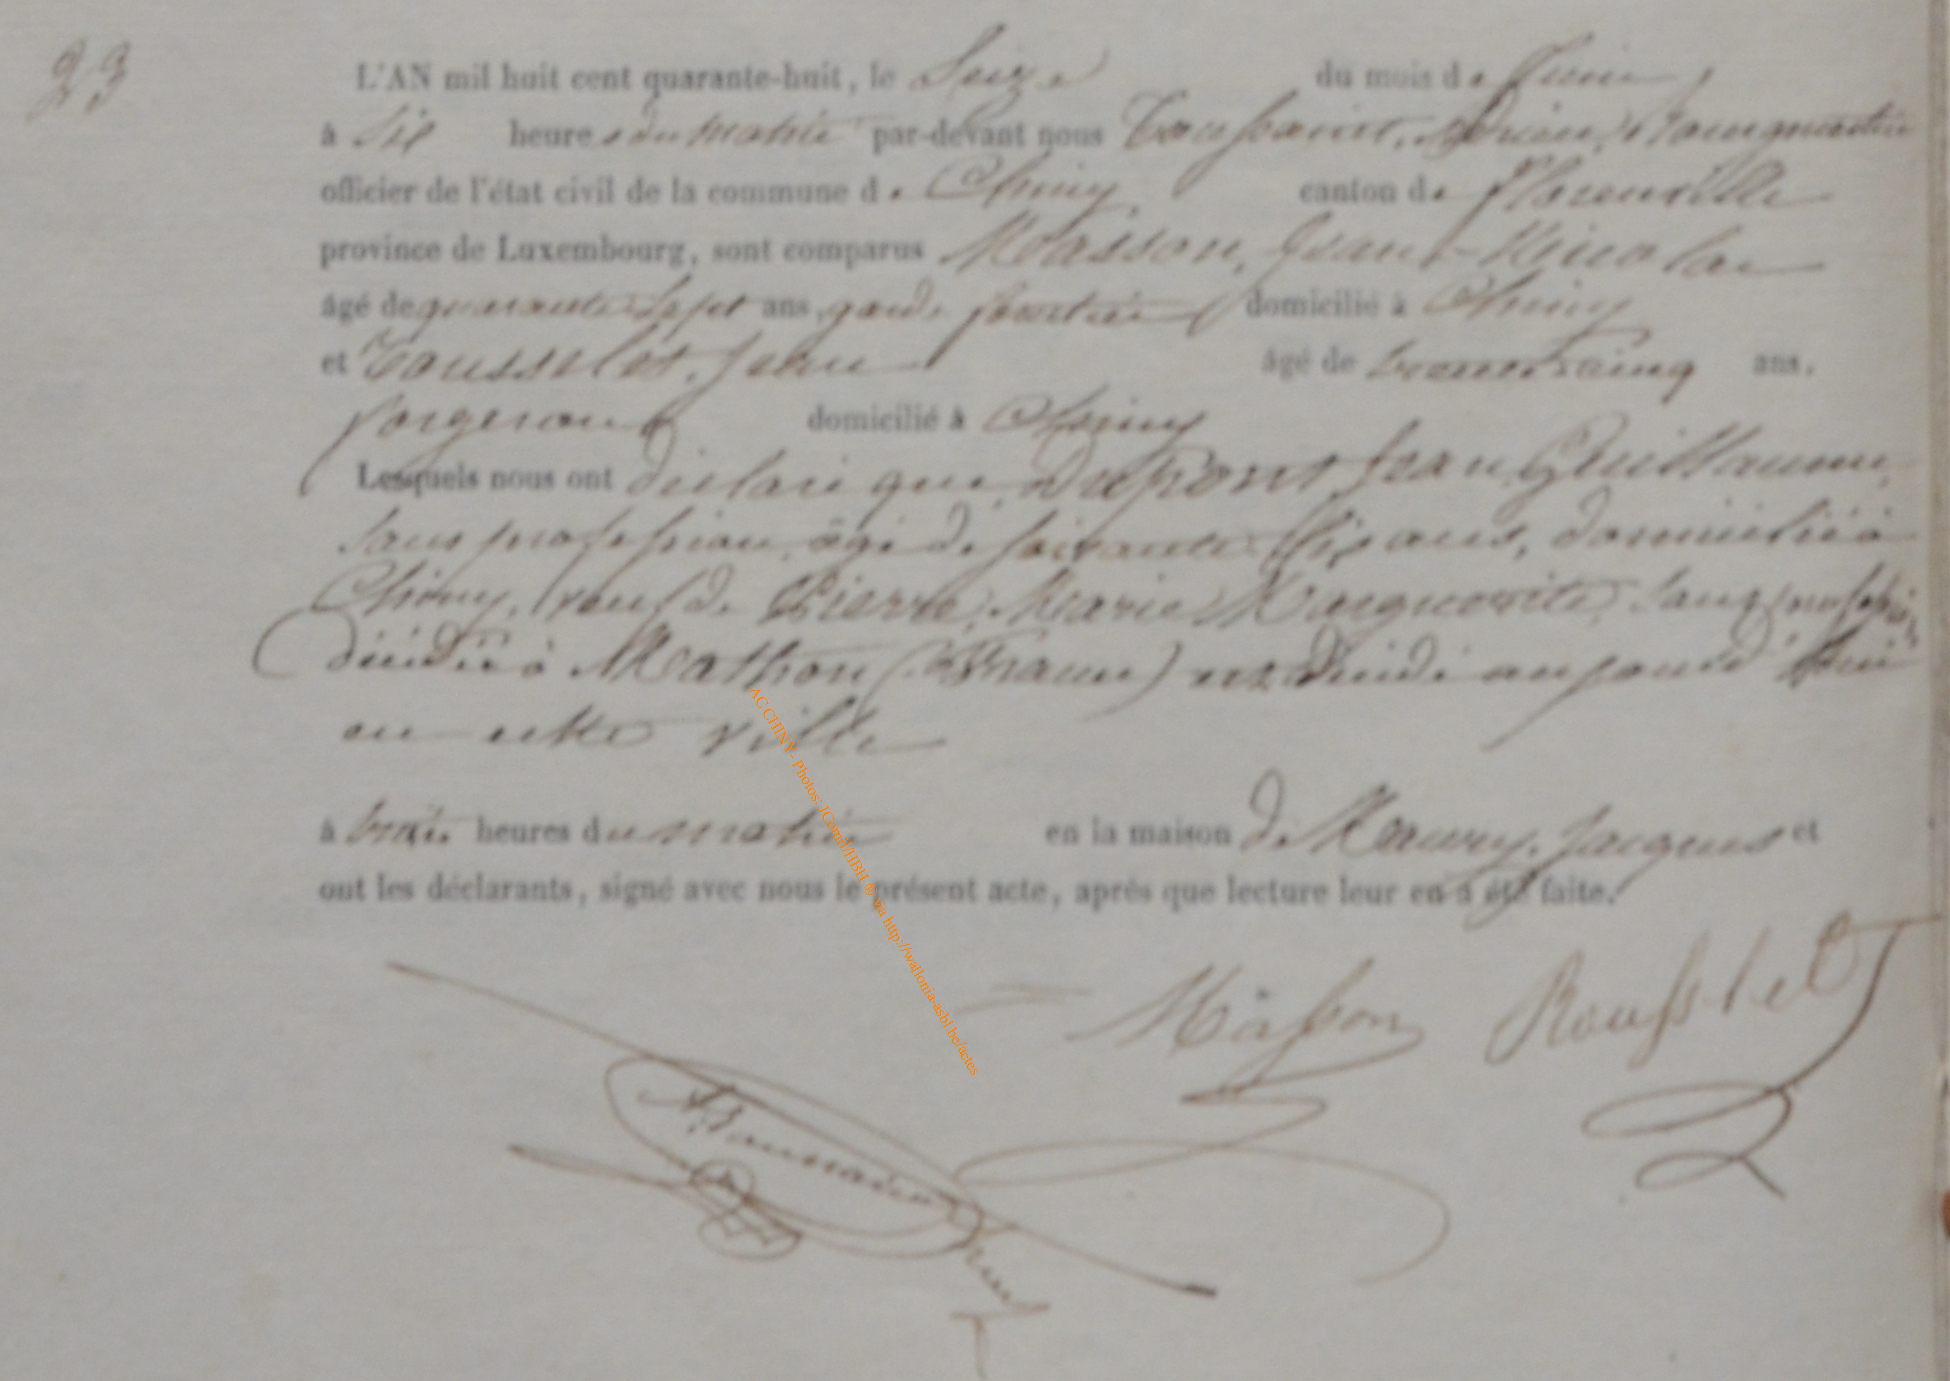 23
L'AN mil huit cent quarante-huit, le Seize du mois de Juin,
à Six heures du matin par-devant nous Toussaint, Adrien, Bourguemestre
officier de l'état civil de la commune de Chiny canton de Florenville
province de Luxembourg, sont comparus Masson, Jean-Nicolas
âgé de quarante Sept ans, garde forestier domicilié à Chiny
et Rousselet, Jean âgé de trente cinq ans.
forgeron domicilié à Chiny
Lesquels nous ont déclaré que Dupont Jean Guillaume,
Sans profession, âgé de soixante Six ans, domicilié à
Chiny, veuf de Pierre, Marie Marguerite, Sans profession
décédée à Mathon (France) est décédé aujourd'hui
en cette ville
à trois heures du matin en la maison de Maury, Jacques et
ont les déclarants, signé avec nous le présent acte, après que lecture leur en a été faite.
Masson Rousselet
A. Toussaint
AC CHINY - Photos: via http://wallonia-asbl.be/actes